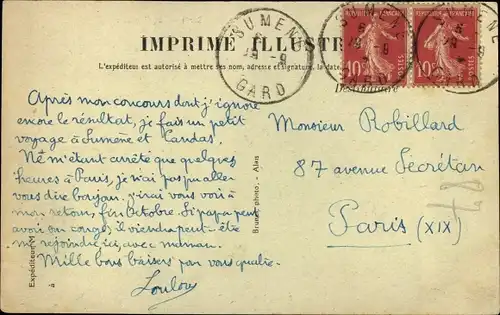 IMPRIMÉ ILLUSTR
L'expéditeur est autorisé à mettre ses nom, adresse et signature, la date
SUMENE
GARD
RÉPUBLIQUE FRANÇAISE
10
Après mon concours dont j'ignore
encore le résultat, je fais un petit
voyage à Sumène et Candas.
Ne m'étant arrêté que quelques
heures à Paris, je n'ai pas pu aller
vous dire bonjour. J'irai vous voir à
mon retour, fin Octobre. Si papa peut
avoir un congé, il viendra peut-être
me rejoindre ici, avec maman.
Mille bons baisers pour vous quatre.
Loulou
Expéditeur M
à
photo. - Alais
Destinataire
Monsieur Robillard
87 avenue Secrétan
Paris (XIX)